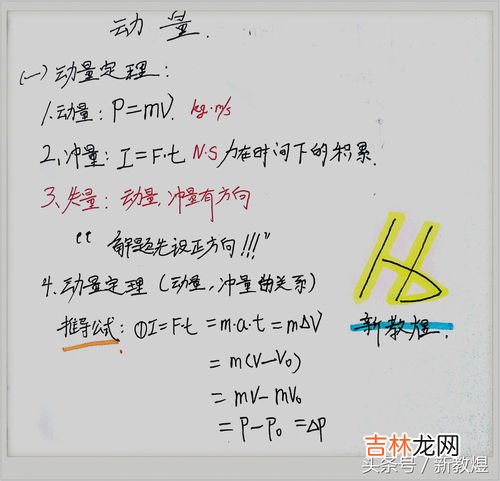 动量.
(一)动量定理:
1.动量: P=mV. kg·m/s
2.冲量: I=F·t N·S 力在时间下的积累.
3.矢量: 动量,冲量有方向
“解题先设正方向!!!”
4.动量定理 (动量,冲量的关系)
推导公式: ①I=F·t =m·a·t =mΔV
=m(V-V₀)
=mV-mV₀
=P-P₀ =ΔP
新教煜.
吉林龙网
头条号/新教煜